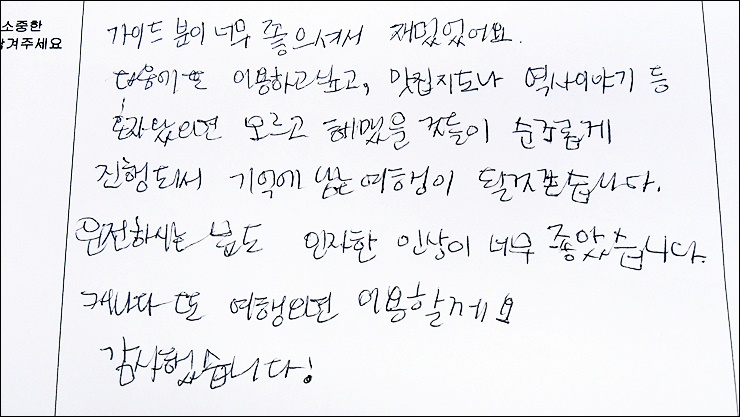 소중한
남겨주세요
가이드 분이 너무 좋으셔서 재밌었어요.
다음에 또 이용하고 싶고, 맛집지도나 역사이야기 등
혼자 왔으면 모르고 헤맸을 것들이 순조롭게
진행되서 기억에 남는 여행이 될것같습니다.
운전하시는 분도 인자한 인상이 너무 좋았습니다.
캐나다 또 여행오면 이용할게요
감사했습니다!